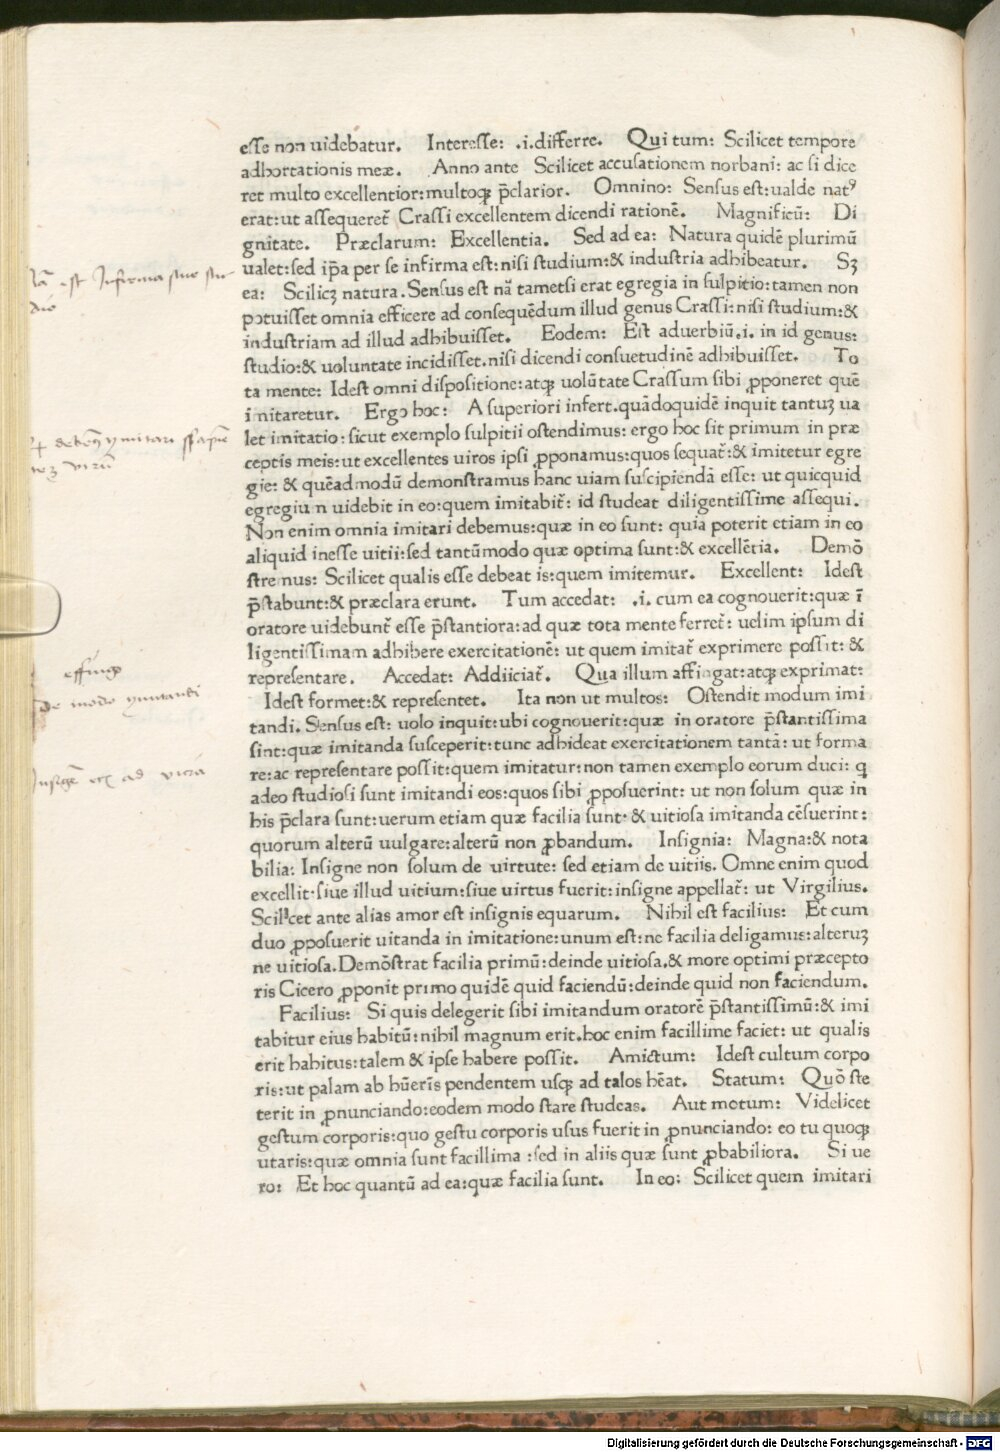 esse non uidebatur. Interesse: .i.differre. Qui tum: Scilicet tempore
adhortationis meæ. Anno ante Scilicet accusationem norbani: ac si dice
ret multo excellentior:multoqꝫ p̄clarior. Omnino: Sensus est:ualde natꝰ
erat:ut assequeret᷑ Crassi excellentem dicendi rationē. Magnificū: Di
gnitate. Præclarum: Excellentia. Sed ad ea: Natura quidē plurimū
ualet:sed ip̄a per se infirma est:nisi studium:& industria adhibeatur. Sꝫ
ea: Scilicꝫ natura.Sensus est nā tametsi erat egregia in sulpitio:tamen non
potuisset omnia efficere ad consequēdum illud genus Crassi:nisi studium:&
industriam ad illud adhibuisset. Eodem: Est aduerbiū.i. in id genus:
studio:& uoluntate incidisset.nisi dicendi consuetudinē adhibuisset. To
ta mente: Idest omni dispositione:atqꝫ uolūtate Crassum sibi ꝓponeret quē
imitaretur. Ergo hoc: A superiori infert.quādoquidē inquit tantuꝫ ua
let imitatio:sicut exemplo sulpitii ostendimus: ergo hoc sit primum in præ
ceptis meis:ut excellentes uiros ipsi ꝓponamus:quos sequat᷑:& imitetur egre
gie: & quēadmodū demonstramus hanc uiam suscipiēndā esse: ut quicquid
egregiu n uidebit in eo:quem imitabit᷑: id studeat diligentissime assequi.
Non enim omnia imitari debemus:quæ in eo sunt: quia poterit etiam in eo
aliquid inesse uitii:sed tantūmodo quæ optima sunt:& excellētia. Demō
stremus: Scilicet qualis esse debeat is:quem imitemur. Excellent: Idest
p̄stabunt:& præclara erunt. Tum accedat: .i. cum ea cognouerit:quæ ī
oratore uidebunt᷑ esse p̄stantiora:ad quæ tota mente ferret᷑: uelim ipsum di
ligentissimam adhibere exercitationē: ut quem imitat᷑ exprimere possit: &
representare. Accedat: Addiiciat᷑. Qua illum affingat:atqꝫ exprimat:
Idest formet:& representet. Ita non ut multos: Ostendit modum imi
tandi. Sensus est: uolo inquit:ubi cognouerit:quæ in oratore p̄stantissima
sint:quæ imitanda susceperit:tunc adhideat exercitationem tantā: ut forma
re:ac representare possit:quem imitatur:non tamen exemplo eorum duci: q
adeo studiosi sunt imitandi eos:quos sibi ꝓposuerint: ut non solum quæ in
his p̄clara sunt:uerum etiam quæ facilia sunt· & uitiosa imitanda cēsuerint:
quorum alterū uulgare:alterū non ꝓbandum. Insignia: Magna:& nota
bilia: Insigne non solum de uirtute: sed etiam de uitiis. Omne enim quod
excellit·siue illud uitium:siue uirtus fuerit:insigne appellat᷑: ut Virgilius.
Scilicet ante alias amor est insignis equarum. Nihil est facilius: Et cum
duo ꝓposuerit uitanda in imitatione:unum est:ne facilia deligamus:alteruꝫ
ne uitiosa.Demōstrat facilia primū:deinde uitiosa.& more optimi præcepto
ris Cicero ꝓponit primo quidē quid faciendū:deinde quid non faciendum.
Facilius: Si quis delegerit sibi imitandum oratorē p̄stantissimū:& imi
tabitur eius habitū:nihil magnum erit.hoc enim facillime faciet: ut qualis
erit habitus:talem & ipse habere possit. Amictum: Idest cultum corpo
ris:ut palam ab hūeris pendentem usqꝫ ad talos hēat. Statum: Quō ste
terit in ꝓnunciando:eodem modo stare studeas. Aut motum: Videlicet
gestum corporis:quo gestu corporis usus fuerit in ꝓnunciando: eo tu quoqꝫ
utaris:quæ omnia sunt facillima :sed in aliis quæ sunt ꝓbabiliora. Si ue
ro: Et hoc quantū ad ea:quæ facilia sunt. In eo: Scilicet quem imitari
est Infirma sine stu
dio
effingo
De modo ymitandi
Digitalisierung gefördert durch die Deutsche Forschungsgemeinschaft - DFG